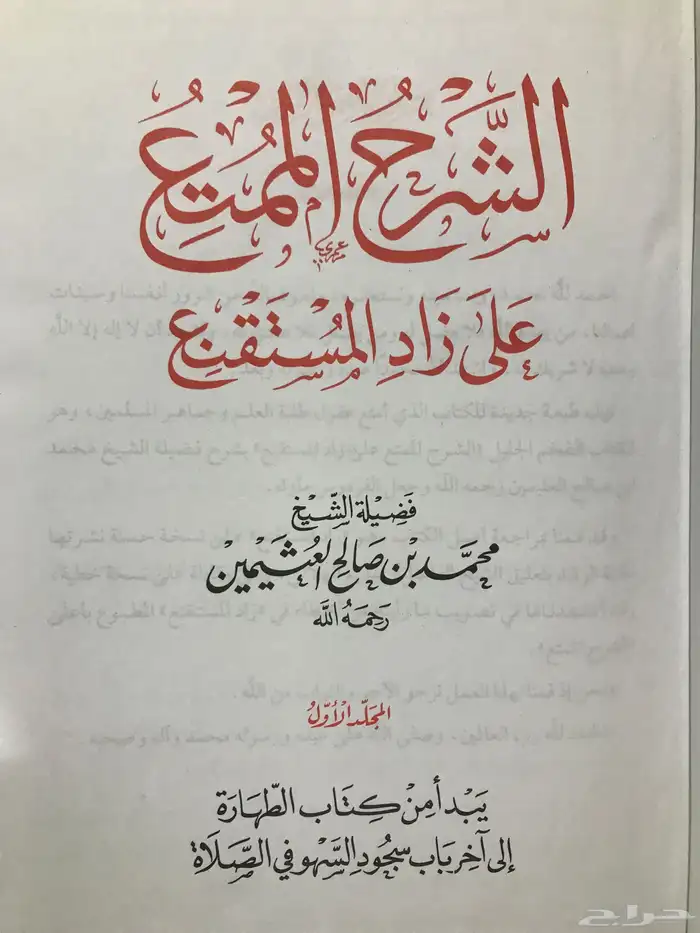 الشَّرْحُ المُمْتِعُ
عَلَى زَادِ المُسْتَقْنِعِ
فَضِيلَة الشَّيْخ
مُحَمَّد بْن صَالِح العُثَيْمِين
رَحِمَهُ اللَّه
المجَلّد الأوّل
يَبْدأ مِنْ كِتَاب الطّهَارَة
إلى آخِر بَاب سُجُود السَّهو في الصَّلَاة
حراج